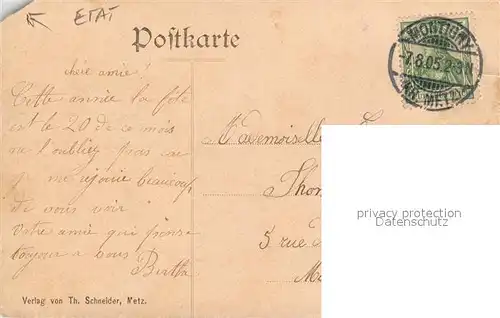 ETAT
Postkarte
MONTIGNY
7.8.05
(KR. METZ)
chère amie!
Cette année la fête
est le 20 de ce mois
ne l'oubliez pas car
je me rejouie beaucoup
de vous voir
Votre amie qui pense
toujour a vous
Bertha
Mademoiselle
Thon
5 rue
privacy protection
Datenschutz
Verlag von Th. Schneider, Metz.